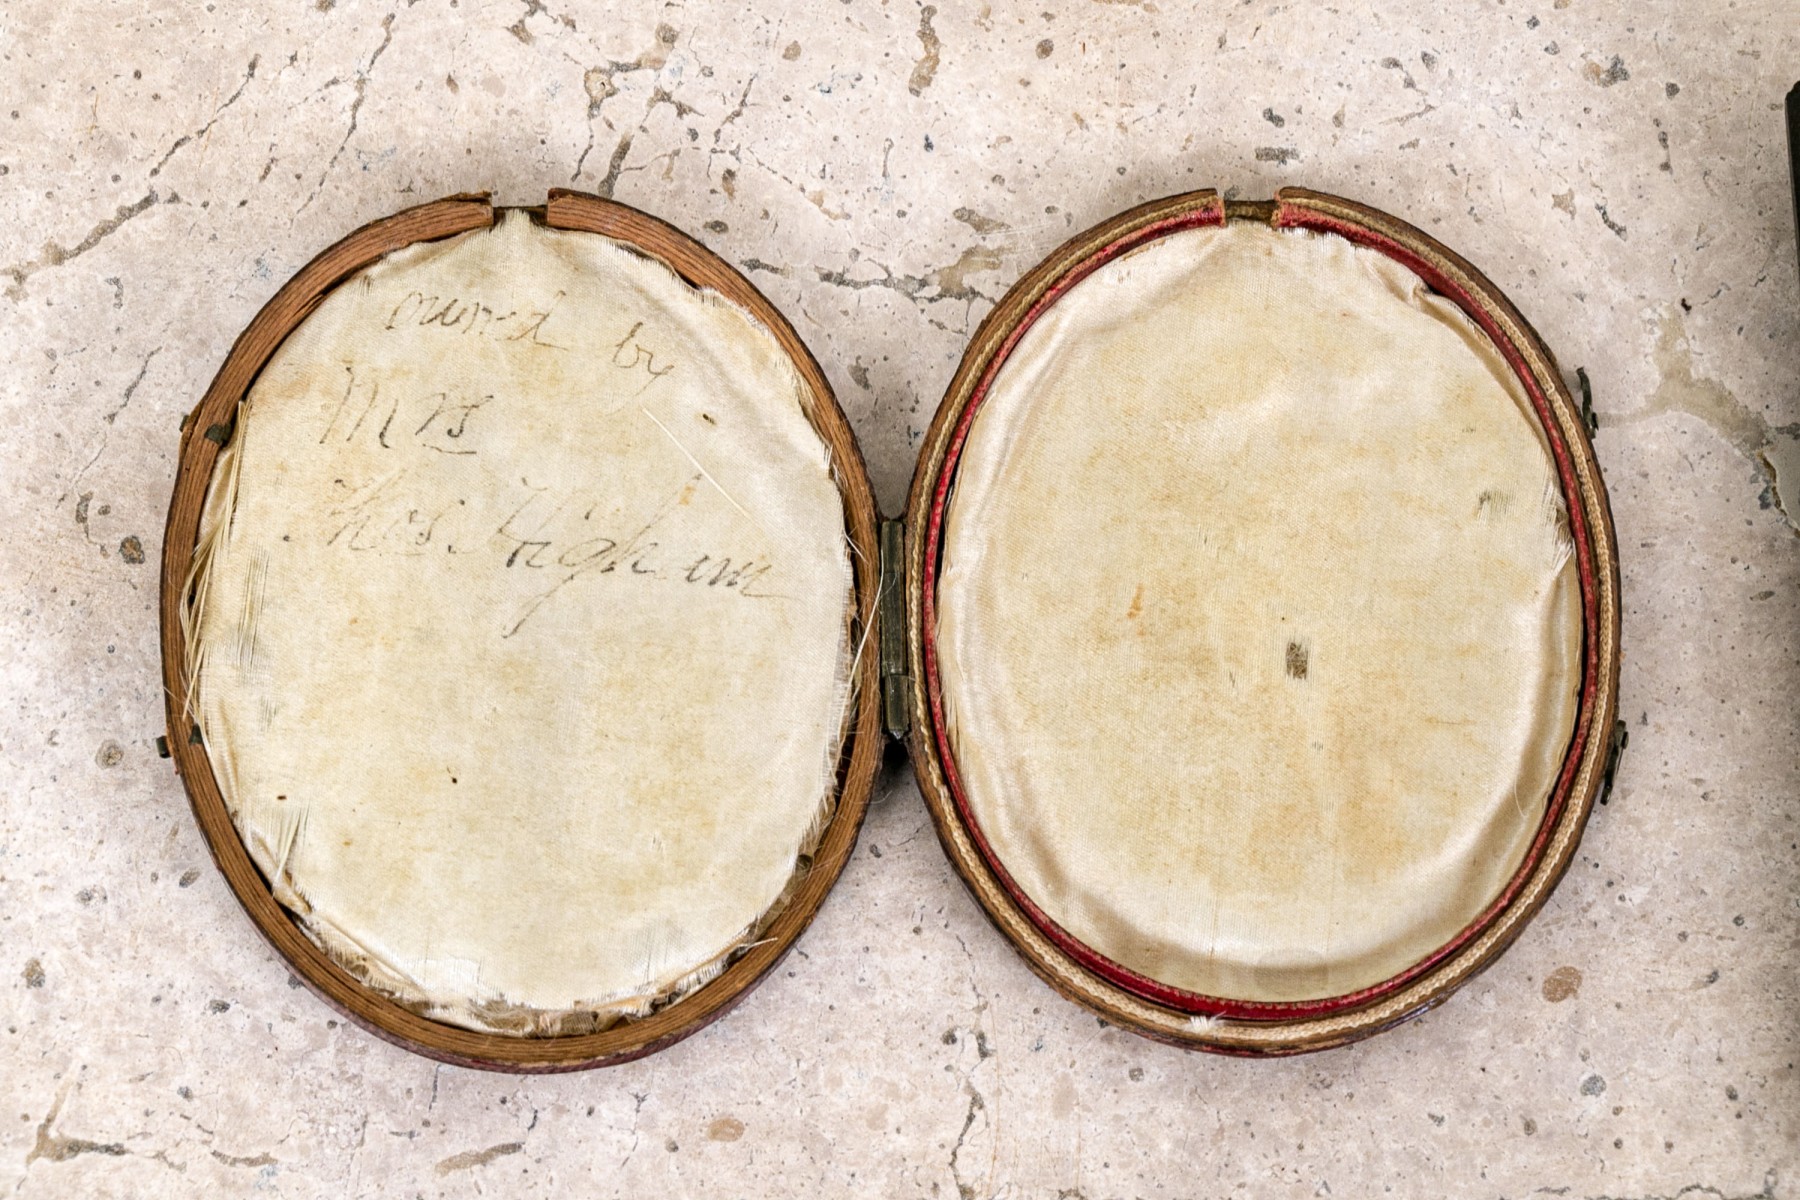 owned by
Mrs
Thos. Higham